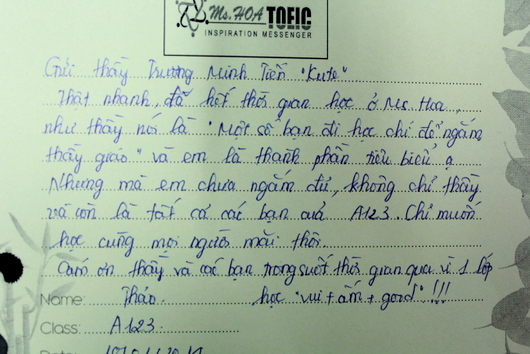 Ms. HOA TOEIC
INSPIRATION MESSENGER
Gửi thầy Trương Minh Tiến "Kute"
Thật nhanh, đã hết thời gian học ở Ms Hoa,
như thầy nói là "Một số bạn đi học chỉ để ngắm
thầy giáo" và em là thành phần tiêu biểu ạ
Nhưng mà em chưa ngắm đủ, không chỉ thầy
và còn là tất cả các bạn của A123. Chỉ muốn
học cùng mọi người mãi thôi.
Cám ơn thầy và các bạn trong suốt thời gian qua vì 1 lớp
Name: Thảo học "vui + ấm + good" !!!
Class: A123